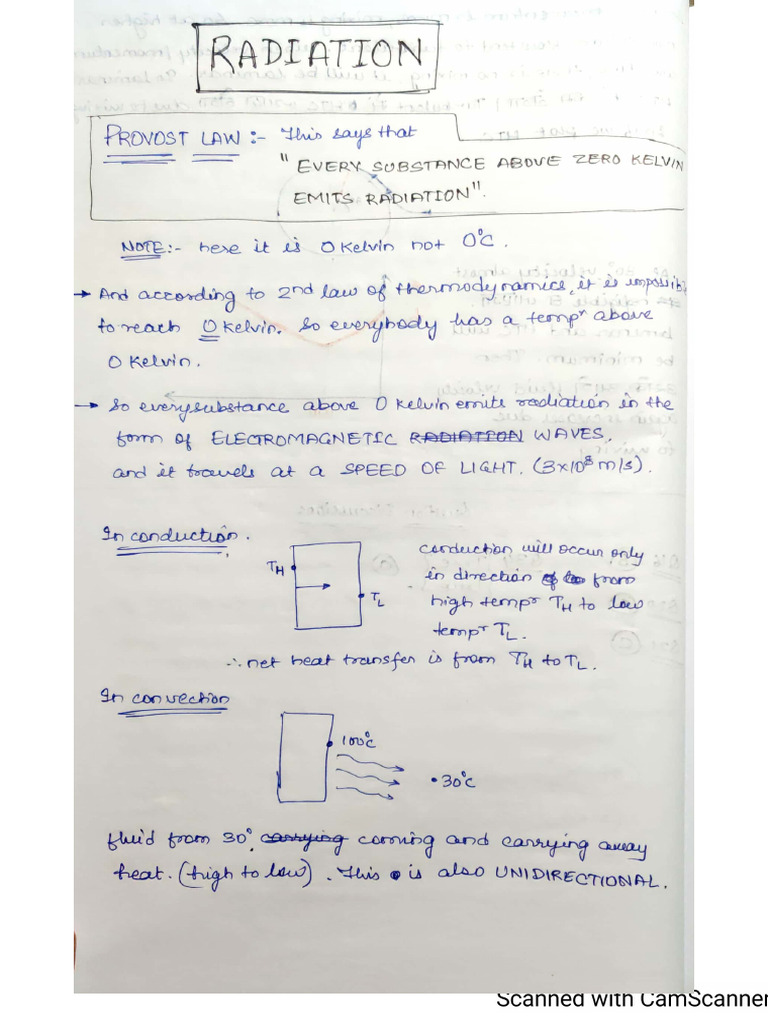 RADIATION
PROVOST LAW :- This says that
"EVERY SUBSTANCE ABOVE ZERO KELVIN
EMITS RADIATION".
NOTE:- here it is 0 Kelvin not 0°C.
→ And according to 2nd law of thermodynamics, it is impossib
to reach 0 Kelvin. So everybody has a tempr above
0 Kelvin.
→ So everysubstance above 0 Kelvin emits radiation in the
form of ELECTROMAGNETIC RADIATION WAVES.
and it travels at a SPEED OF LIGHT. (3×10⁸ m/s).
In conduction.
TH
TL
conduction will occur only
in direction from
high tempr TH to low
tempr TL.
∴ net heat transfer is from TH to TL.
In convection
100°C
30°C
fluid from 30°. carrying coming and carrying away
heat. (high to low). This is also UNIDIRECTIONAL.
Scanned with CamScanner